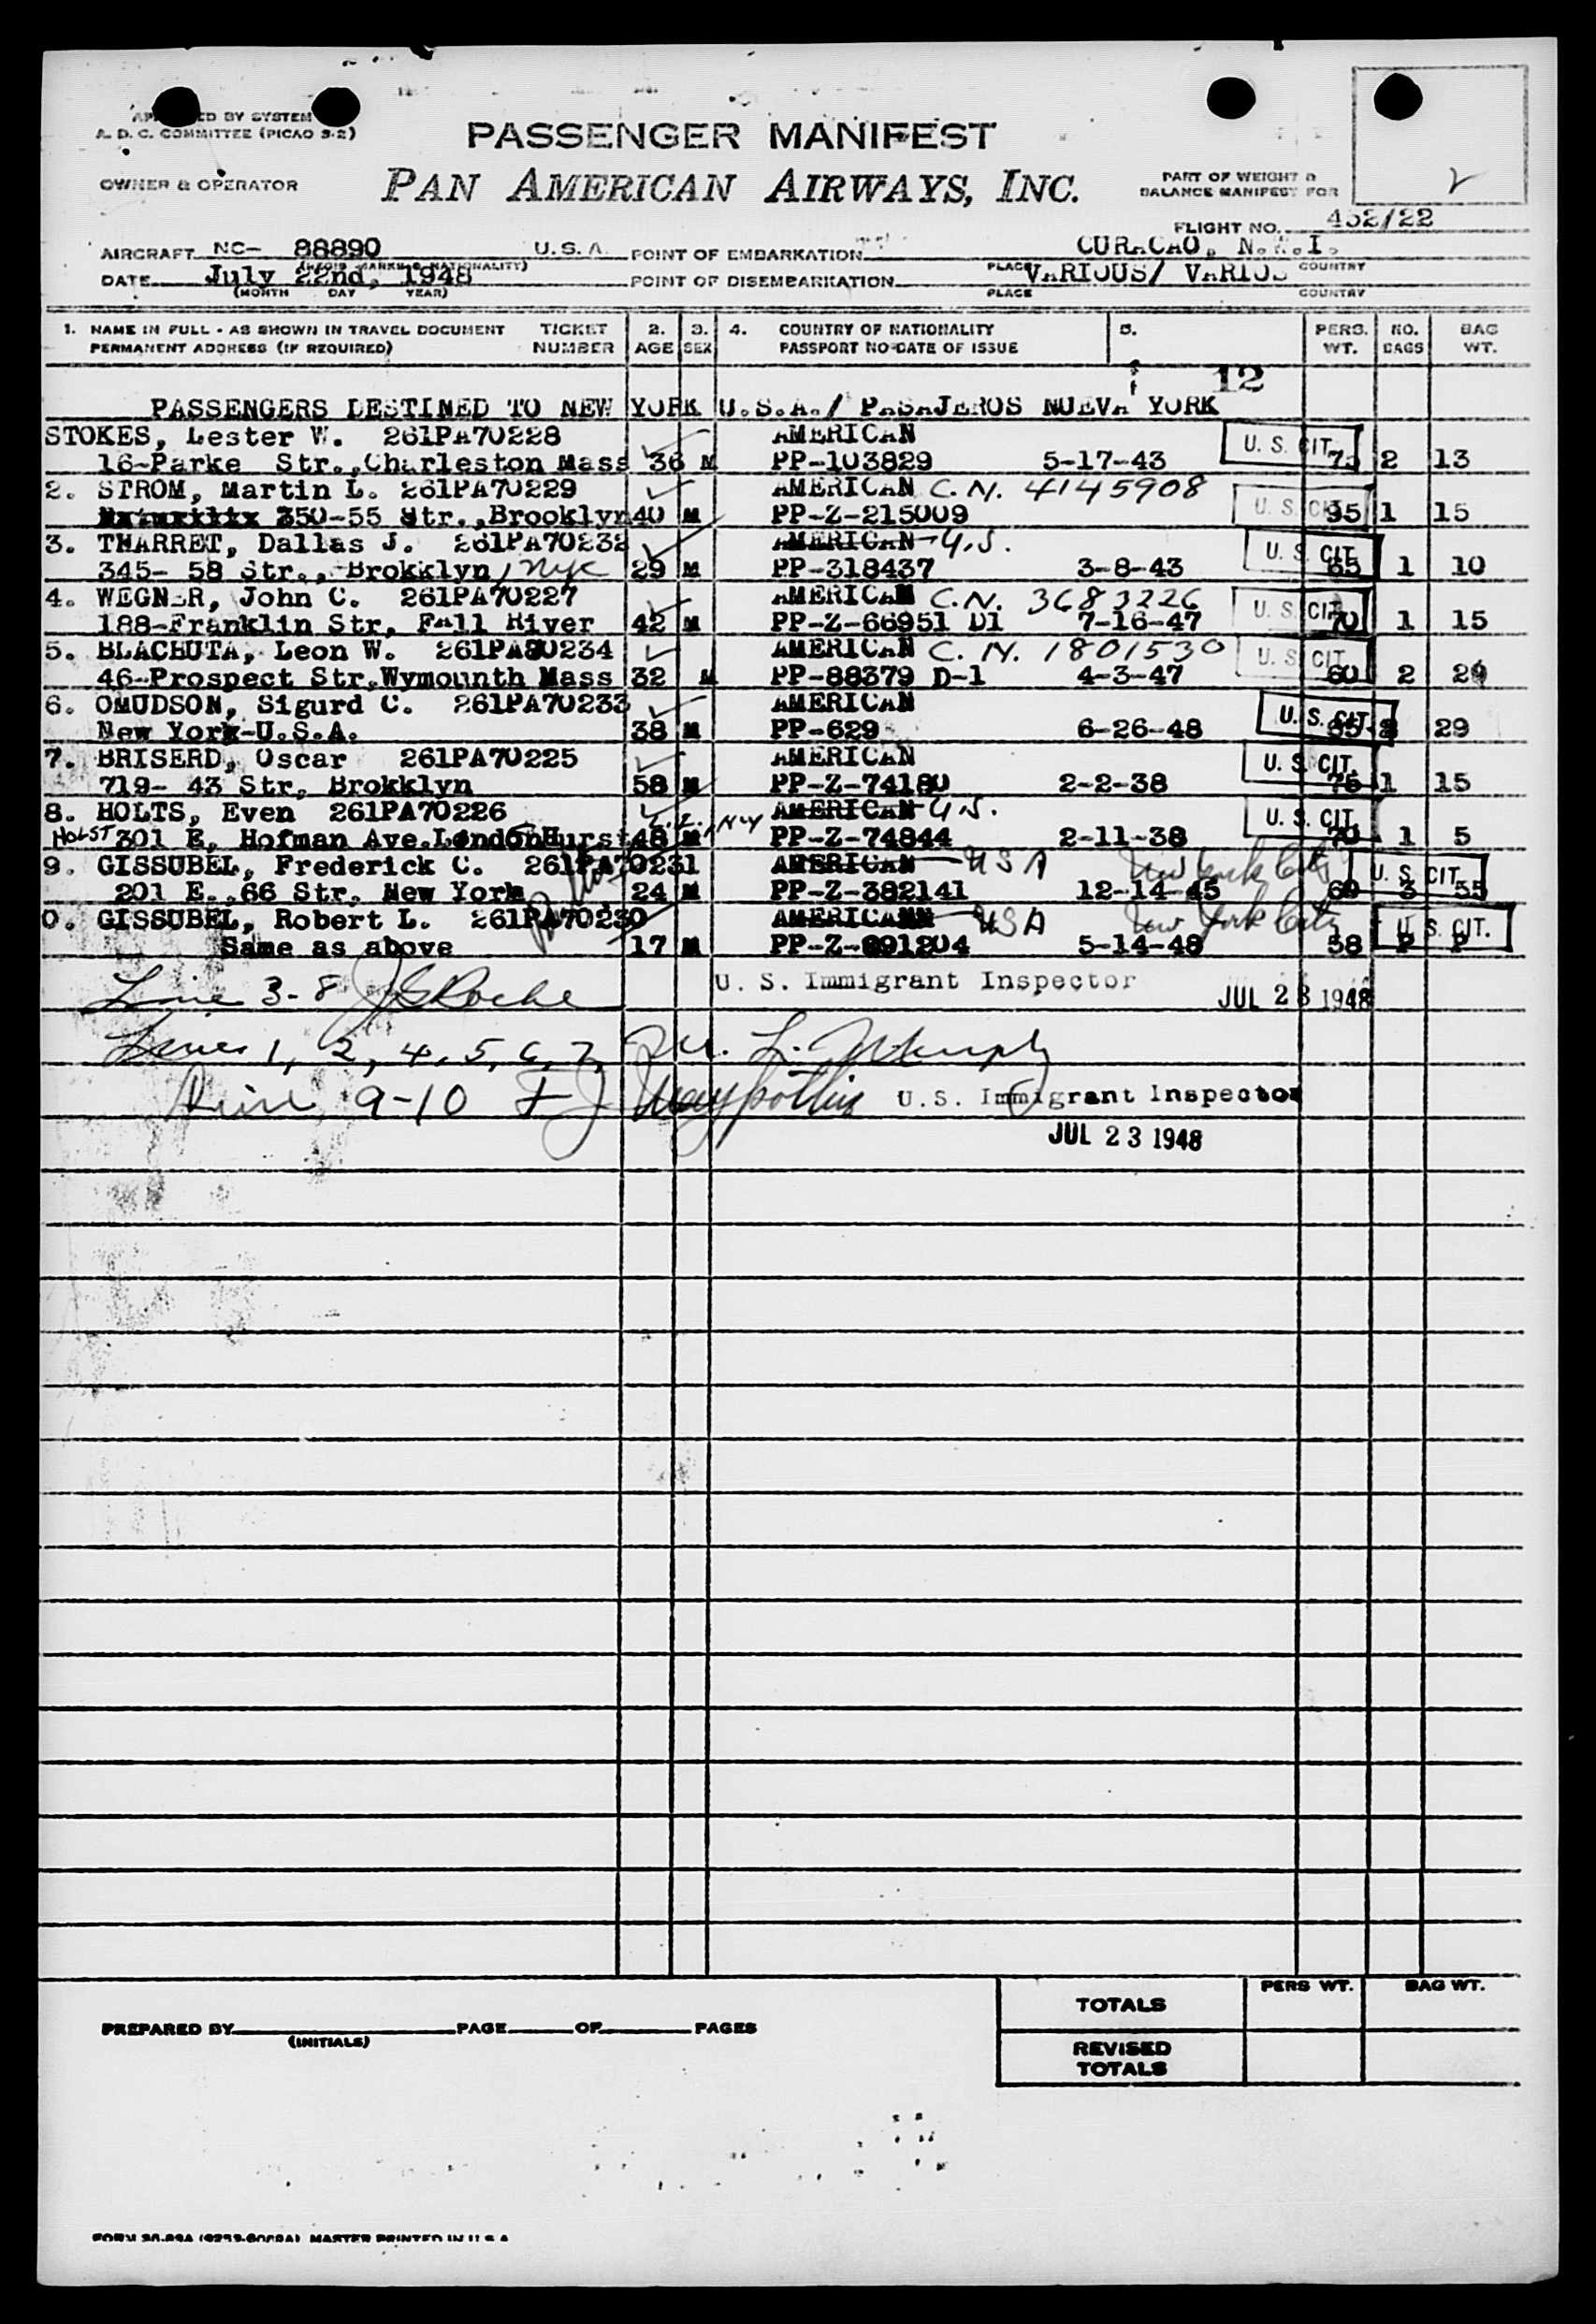 A. D. C. COMMITTEE (PICAO 9-2)
OWNER & OPERATOR
PASSENGER MANIFEST
PAN AMERICAN AIRWAYS, INC.
PART OF WEIGHT &
BALANCE MANIFEST FOR
FLIGHT NO. 432/22
AIRCRAFT NC- 88890 U.S.A. POINT OF EMBARKATION CURACAO, N.W.I.
DATE July 22nd, 1948 POINT OF DISEMBARKATION VARIOUS/
(MONTH DAY YEAR) PLACE COUNTRY
1. NAME IN FULL - AS SHOWN IN TRAVEL DOCUMENT TICKET 2. 3. 4. COUNTRY OF NATIONALITY 5. PERS. NO. BAG
PERMANENT ADDRESS (IF REQUIRED) NUMBER AGE SEX PASSPORT NO-DATE OF ISSUE WT. BAGS WT.
12
PASSENGERS DESTINED TO NEW YORK U.S.A./ PASAJEROS NUEVA YORK
STOKES, Lester W. 261PA70228 AMERICAN U. S. CIT.
16-Parke Str.,Charleston Mass 36 M PP-103829 5-17-43 2 13
2. STROM, Martin L. 261PA70229 AMERICAN C.N. 4145908 U. S. CIT.
350-55 Str.,Brooklyn 40 M PP-Z-215009 95 1 15
3. THARRET, Dallas J. 261PA70232 AMERICAN U.S. U. S. CIT.
345- 58 Str., Brokklyn, NYC 29 M PP-318437 3-8-43 65 1 10
4. WEGNER, John C. 261PA70227 AMERICAN C.N. 3683226 U. S. CIT.
188-Franklin Str, Fall River 42 M PP-Z-66951 D1 7-16-47 70 1 15
5. BLACHUTA, Leon W. 261PA80234 AMERICAN C. N. 1801530 U. S. CIT.
46-Prospect Str,Wymounth Mass 32 M PP-88379 D-1 4-3-47 60 2
6. OMUDSON, Sigurd C. 261PA70233 AMERICAN U. S. CIT.
New York-U.S.A. 38 M PP-629 6-26-48 29
7. BRISERD, Oscar 261PA70225 AMERICAN U. S. CIT.
719- 43 Str, Brokklyn 58 M PP-Z-74180 2-2-38 75 1 15
8. HOLTS, Even 261PA70226 AMERICAN U.S. U. S. CIT.
HOLST 301 E, Hofman Ave.LondonHurst 48 M PP-Z-74844 2-11-38 70 1 5
9. GISSUBEL, Frederick C. 261PA70231 AMERICAN USA New York City U. S. CIT.
201 E.,66 Str, New York 24 M PP-Z-382141 12-14-45 60 3 55
0. GISSUBEL, Robert L. 261PA70230 AMERICANN USA New York City U. S. CIT.
Same as above 17 M 5-14-48 58
Line 3-8 J G Roche U. S. Immigrant Inspector JUL 23 1948
Lines 1, 2, 4, 5, 6, 7, L. Murphy
Line 9-10 F J U.S. Immigrant Inspector
JUL 23 1948
PERS WT. BAG WT.
TOTALS
PREPARED BY PAGE OF PAGES
(INITIALS)
REVISED
TOTALS
MASTER PRINTED IN U S A